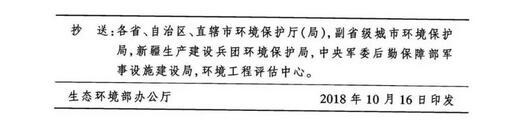 抄 送:各省、自治区、直辖市环境保护厅(局),副省级城市环境保护
局,新疆生产建设兵团环境保护局,中央军委后勤保障部军
事设施建设局,环境工程评估中心。
生态环境部办公厅 2018年10月16日印发